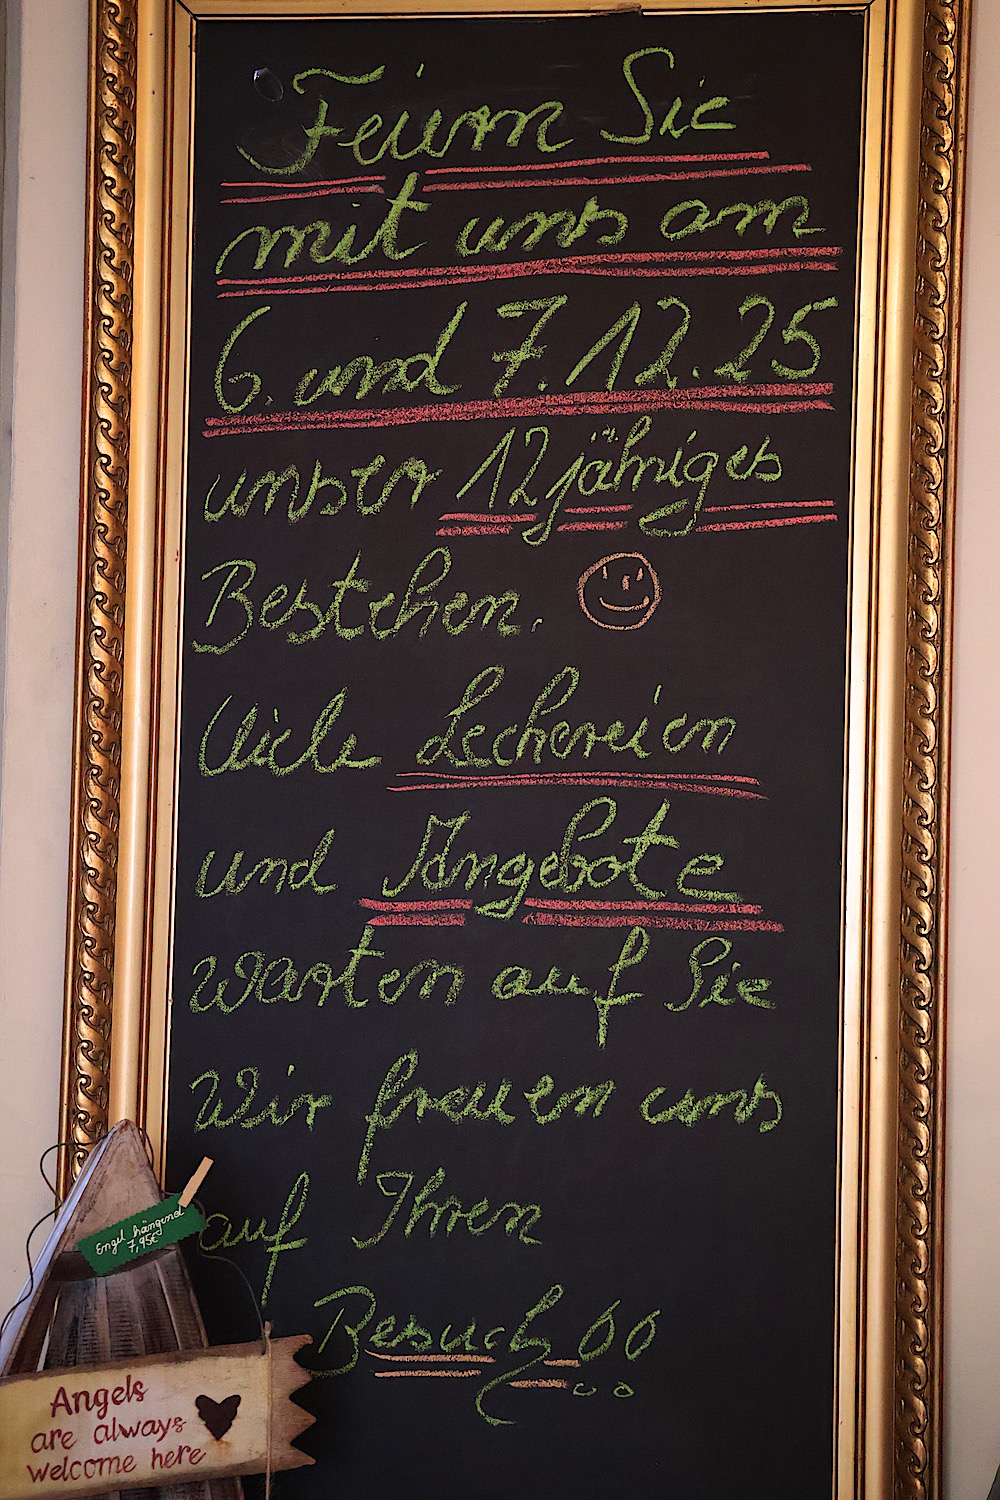 Feiern Sie
mit uns am
6. und 7. 12. 25
unser 12 jähriges
Bestehen.
Viele Leckereien
und Angebote
warten auf Sie
Wir freuen uns
auf Ihren
Besuch !!
Engel hängend
7,95€
Angels
are always
welcome here